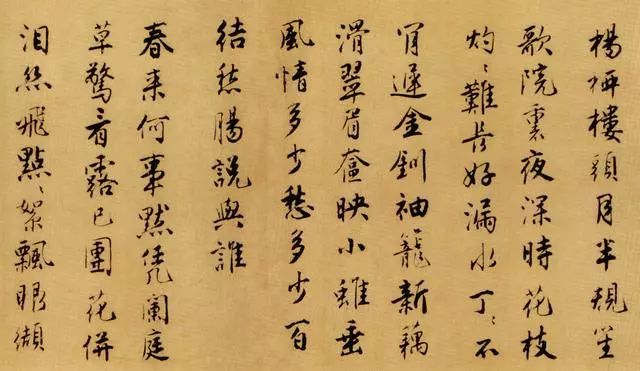 楊柳樓頭月半規笙
歌院裏夜深時花枝
灼〻難長好漏水丁〻不
肯遲金釧袖籠新藕
滑翠眉奩映小垂
風情多少愁多少百
結愁腸說與誰
春来何事默凭阑庭
草驚看露已團花併
泪絲飛點〻絮飄眼纈